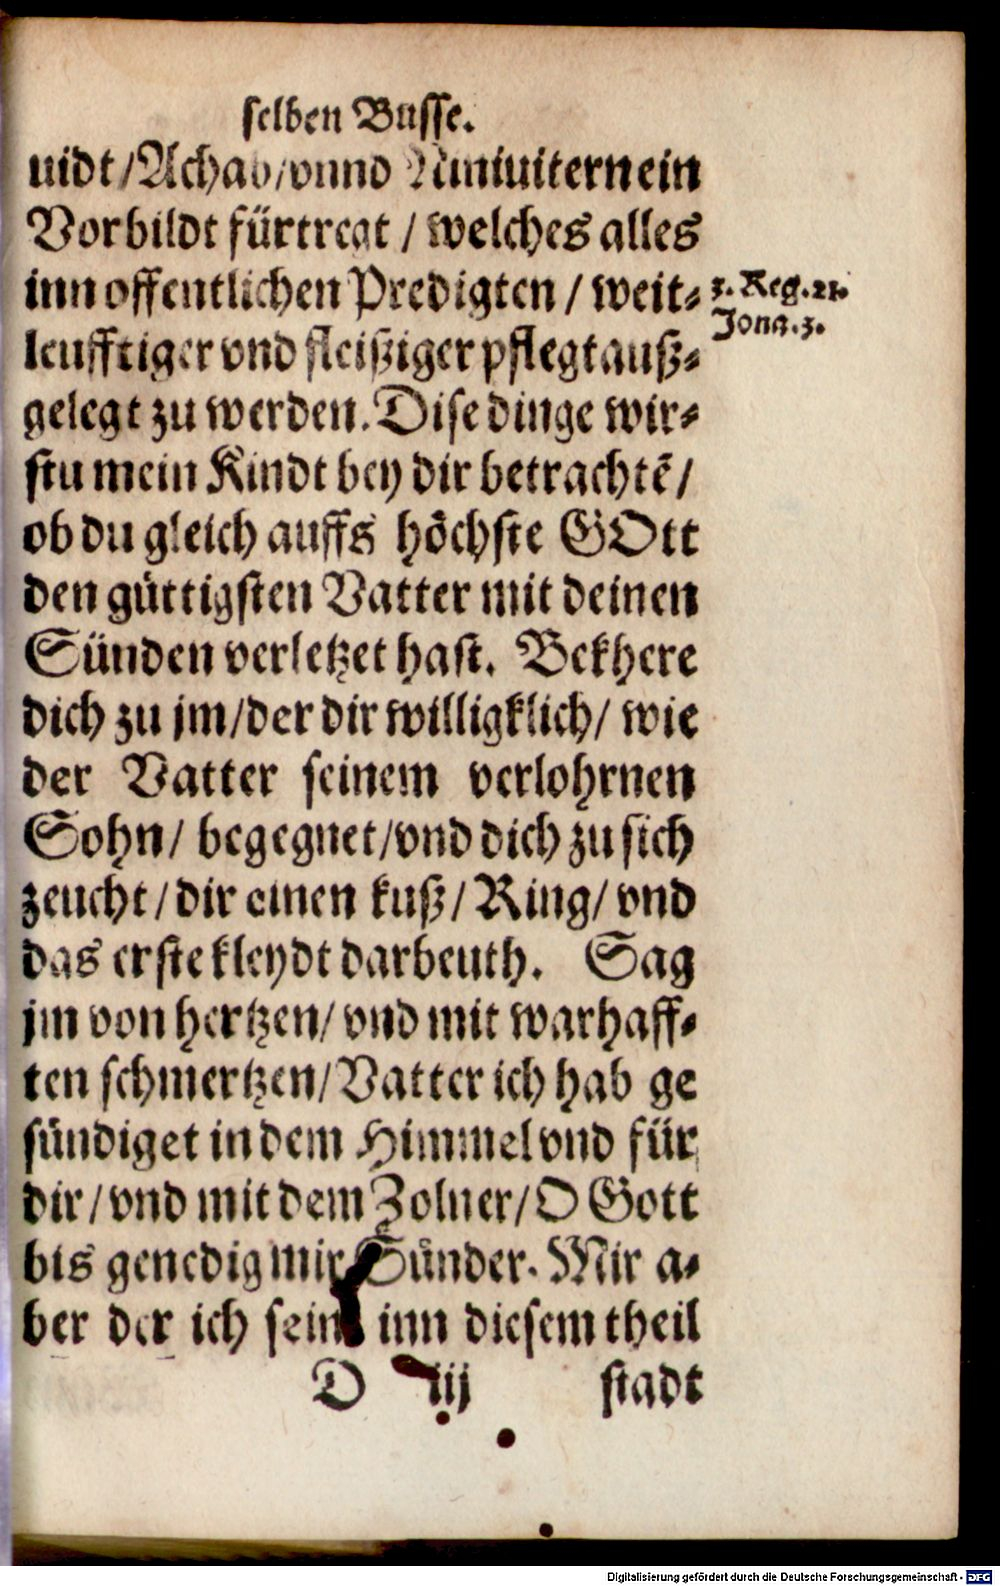 selben Busse.
uidt/Achab/vnnd Niniuitern ein
Vorbildt fürtregt / welches alles
inn offentlichen Predigten / weit⸗
leufftiger vnd fleißiger pflegt auß⸗
gelegt zu werden. Dise dinge wir⸗
stu mein Kindt bey dir betrachtẽ/
ob du gleich auffs höchste GOtt
den güttigsten Vatter mit deinen
Sünden verletzet hast. Bekhere
dich zu jm/der dir willigklich/ wie
der Vatter seinem verlohrnen
Sohn/ begegnet/vnd dich zu sich
zeucht/dir einen kuß/ Ring/ vnd
das erste kleydt darbeuth. Sag
jm von hertzen/ vnd mit warhaff⸗
ten schmertzen/Vatter ich hab ge
sündiget in dem Himmel vnd für
dir/vnd mit dem Zolner/O Gott
bis genedig mir Sünder. Mir a⸗
ber der ich sein inn diesem theil
D iij stadt
3. Reg. 21.
Jona. 3.
Digitalisierung gefördert durch die Deutsche Forschungsgemeinschaft - DFG